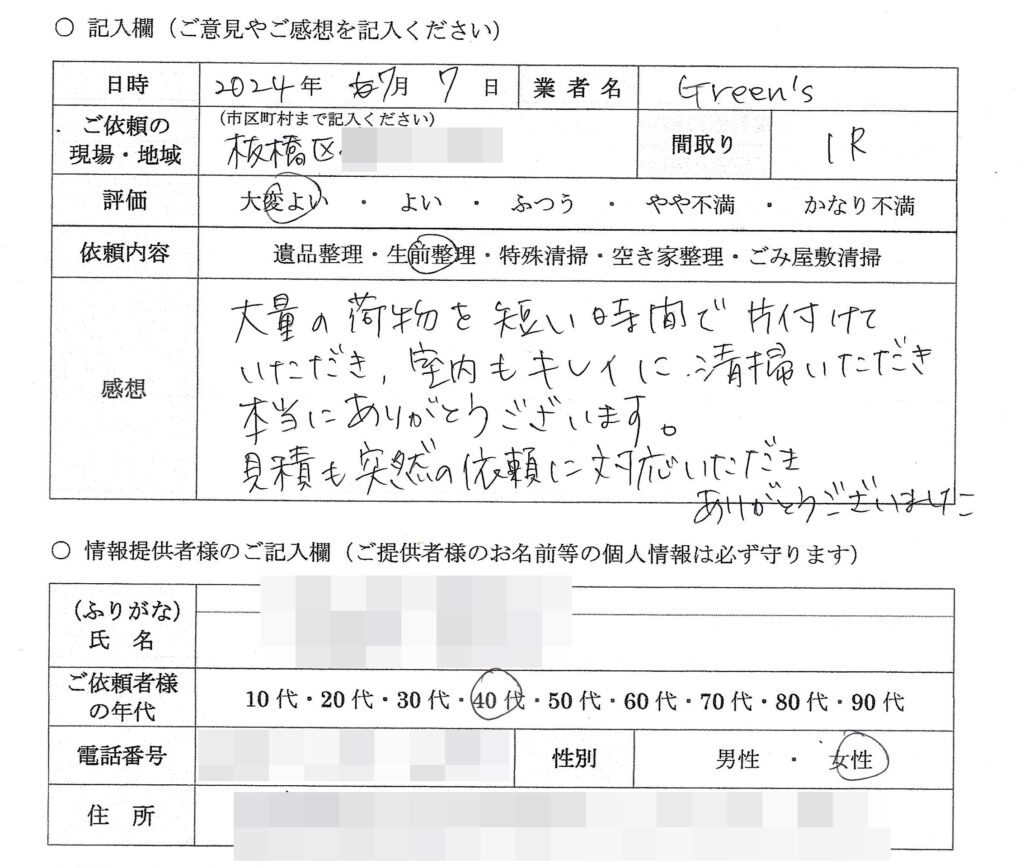 ○ 記入欄（ご意見やご感想を記入ください）
日時 2024年 7月 7日 業者名 Green's
ご依頼の現場・地域 （市区町村まで記入ください） 板橋区 間取り 1R
評価 大変よい ・ よい ・ ふつう ・ やや不満 ・ かなり不満
依頼内容 遺品整理・生前整理・特殊清掃・空き家整理・ごみ屋敷清掃
感想
大量の荷物を短い時間で片付けて
いただき、室内もキレイに清掃いただき
本当にありがとうございます。
見積も突然の依頼に対応いただき
ありがとうございました
○ 情報提供者様のご記入欄（ご提供者様のお名前等の個人情報は必ず守ります）
（ふりがな）
氏 名
ご依頼者様の年代 10代・20代・30代・40代・50代・60代・70代・80代・90代
電話番号 性別 男性 ・ 女性
住 所